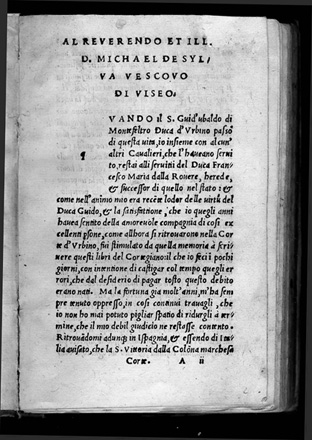 AL REVERENDO ET ILL.
D. MICHAEL DE SYL/
VA VESCOVO
DI VISEO.
VANDO il S. Guid'ubaldo di
Montefeltro Duca d'Vrbino passò
di questa uita, io insieme con alcun'
altri Caualieri, che l'haueano serui
to, restai alli seruitii del Duca Fran
cesco Maria dalla Rouere, herede,
& successor di quello nel stato: &
come nell'animo mio era recẽte lodor delle uirtù del
Duca Guido, & la satisfattione, che io quegli anni
haueua sentito della amoreuole compagnia di cosi ex
cellenti ꝑsone, come allhora si ritrouarono nella Cor
te d'Vrbino, fui stimulato da quella memoria à scri/
uere questi libri del Cortegiano: il che io feci ĩ pochi
giorni, con intentione di castigar col tempo quegli er
rori, che dal desiderio di pagar tosto questo debito
erano nati. Ma la fortuna già molt'anni, m'ha sem
pre tenuto oppresso, in cosi continui trauagli, che
io non ho mai potuto pigliar spatio di ridurgli à ter/
mine, che il mio debil giudicio ne restasse contento.
Ritrouãdomi adunq; in Ispagna, & essendo di Ita/
lia auisato, che la S. Vittoria dalla Colõna marchesa
Corte. A ii